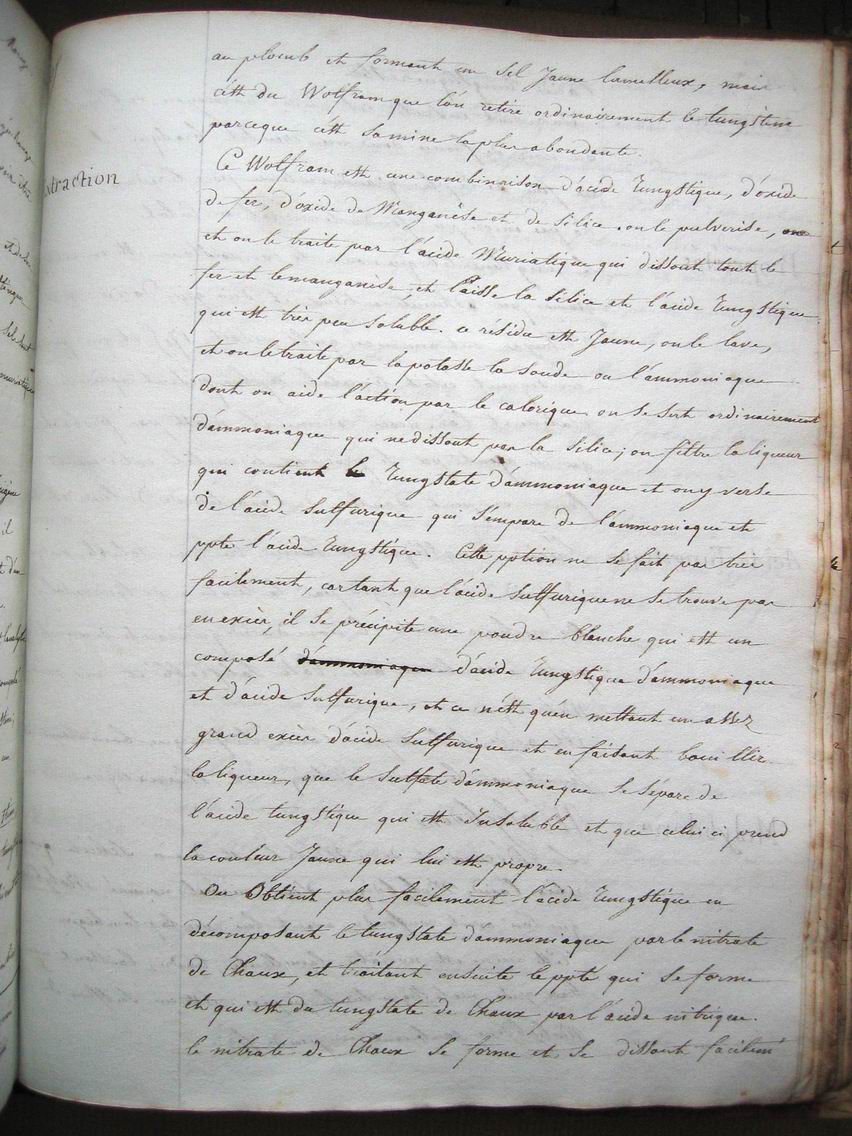 au plomb et formant un sel Jaune lamelleux, mais
c'ést du Wolfram que l'on retire ordinairement le tungstène
parceque c'ést sa mine la plus abondante.
Extraction
Ce Wolfram est une combinaison d'acide Tungstique, d'oxide
de fer, d'oxide de Manganèse et de silice. on le pulverise,
et on le traite par l'acide Muriatique qui dissout tout le
fer et le manganèse, et laisse la silice et l'acide Tungstique
qui est très peu soluble. ce résidu est Jaune, on le lave,
et on le traite par la potasse la soude ou l'ammoniaque
dont on aide l'action par le calorique. on se sert ordinairement
d'ammoniaque qui ne dissout pas la silice; on filtre la liqueur
qui contient le Tungstate d'ammoniaque et on y verse
de l'acide sulfurique qui s'empare de l'ammoniaque et
ppte l'acide Tungstique. Cette pption ne se fait pas très
facilement, car tant que l'acide sulfurique ne se trouve pas
en excès, il se précipite une poudre blanche qui est un
composé d'ammoniaque d'acide Tungstique d'ammoniaque
et d'acide sulfurique, et ce n'ést qu'en mettant un assez
grand excès d'acide sulfurique et en faisant bouillir
la liqueur, que le sulfate d'ammoniaque se sépare de
l'acide tungstique qui est Insoluble et que celui ci prend
la couleur Jaune qui lui est propre.
On Obtient plus facilement l'acide Tungstique en
décomposant le tungstate d'ammoniaque par le nitrate
de Chaux, et traitant ensuite le ppté qui se forme
et qui est du tungstate de Chaux par l'acide nitrique.
le nitrate de Chaux se forme et se dissout facilemt